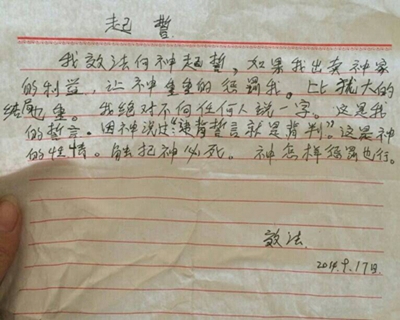 起誓
我效法向神起誓，如果我出卖神家
的利益，让神重重的惩罚我。比犹大的
结局重。我绝对不向任何人说一字。这是我
的誓言。因神说过“违背誓言就是背判”这是神
的性情。触犯神必死。神怎样惩罚也行。
效法
2014.9.17日